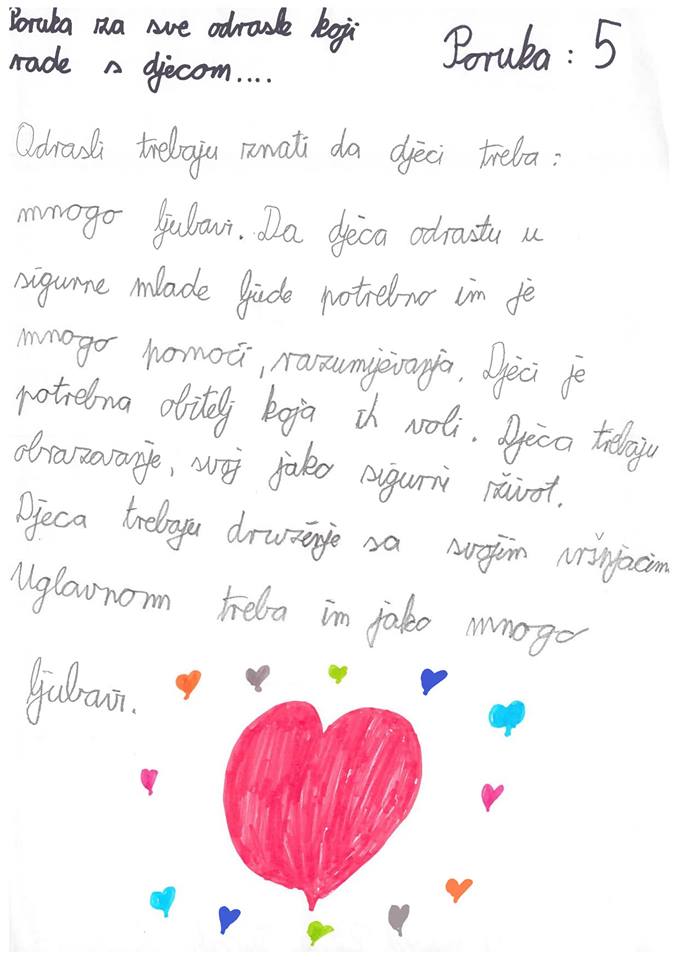 Poruka za sve odrasle koji
rade s djecom....
Poruka : 5
Odrasli trebaju znati da djeci treba :
mnogo ljubavi. Da djeca odrastu u
sigurne mlade ljude potrebno im je
mnogo pomoći, razumijevanja. Djeci je
potrebna obitelj koja ih voli. Djeca trebaju
obrazovanje, svoj jako sigurni život.
Djeca trebaju druženje sa svojim vršnjacim
Uglavnom treba im jako mnogo
ljubavi.